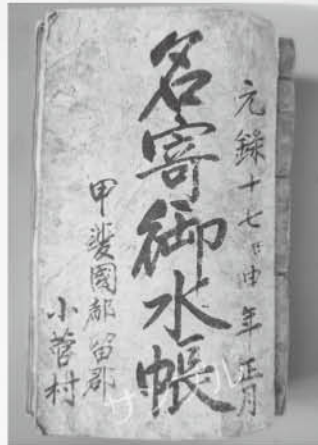 元禄十七甲申年正月
名寄御水帳
甲斐國都留郡
小菅村
サンプル